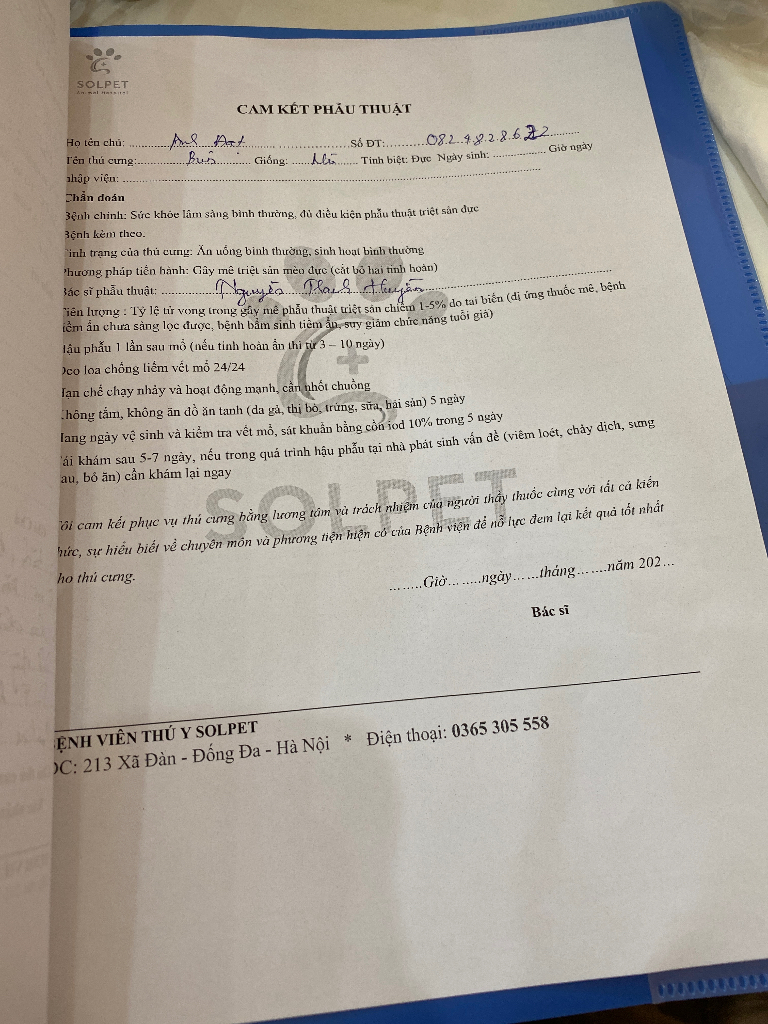 SOLPET
Animal Hospital
CAM KẾT PHẪU THUẬT
Họ tên chủ: Anh Đạt Số ĐT: 082.482.8.6.22
Tên thú cưng: Giống: Tính biệt: Đực Ngày sinh: Giờ ngày
nhập viện:
Chẩn đoán
Bệnh chính: Sức khỏe lâm sàng bình thường, đủ điều kiện phẫu thuật triệt sản đực
Bệnh kèm theo.
Tình trạng của thú cưng: Ăn uống bình thường, sinh hoạt bình thường
Phương pháp tiến hành: Gây mê triệt sản mèo đực (cắt bỏ hai tinh hoàn)
Bác sĩ phẫu thuật: Nguyễn Thanh Huyền
Tiên lượng : Tỷ lệ tử vong trong gây mê phẫu thuật triệt sản chiếm 1-5% do tai biến (dị ứng thuốc mê, bệnh
tiềm ẩn chưa sàng lọc được, bệnh bẩm sinh tiềm ẩn, suy giảm chức năng tuổi già)
Hậu phẫu 1 lần sau mổ (nếu tinh hoàn ẩn thì từ 3 – 10 ngày)
Đeo loa chống liếm vết mổ 24/24
Hạn chế chạy nhảy và hoạt động mạnh, cần nhốt chuồng
Không tắm, không ăn đồ ăn tanh (da gà, thị bò, trứng, sữa, hải sản) 5 ngày
Hàng ngày vệ sinh và kiểm tra vết mổ, sát khuẩn bằng cồn iod 10% trong 5 ngày
Tái khám sau 5-7 ngày, nếu trong quá trình hậu phẫu tại nhà phát sinh vấn đề (viêm loét, chảy dịch, sưng
đau, bỏ ăn) cần khám lại ngay
SOLPET
Tôi cam kết phục vụ thú cưng bằng lương tâm và trách nhiệm của người thầy thuốc cùng với tất cả kiến
thức, sự hiểu biết về chuyên môn và phương tiện hiện có của Bệnh viện để nỗ lực đem lại kết quả tốt nhất
cho thú cưng.
........Giờ........ngày......tháng........năm 202...
Bác sĩ
BỆNH VIÊN THÚ Y SOLPET
ĐC: 213 Xã Đàn - Đống Đa - Hà Nội * Điện thoại: 0365 305 558